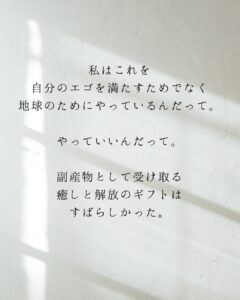 私はこれを
自分のエゴを満たすためでなく
地球のためにやっているんだって。
やっていいんだって。
副産物として受け取る
癒しと解放のギフトは
すばらしかった。